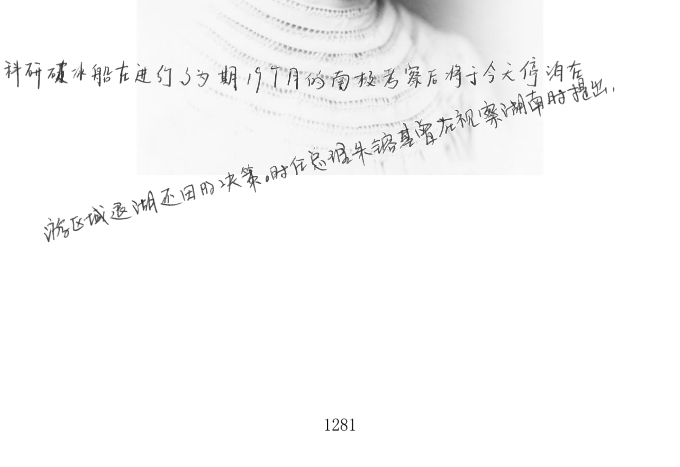 科研破冰船在进行了为期19个月的南极考察后将于今天停泊在
游区域退湖还田的决策。时任总理朱镕基曾在视察湖南时提出,
1281